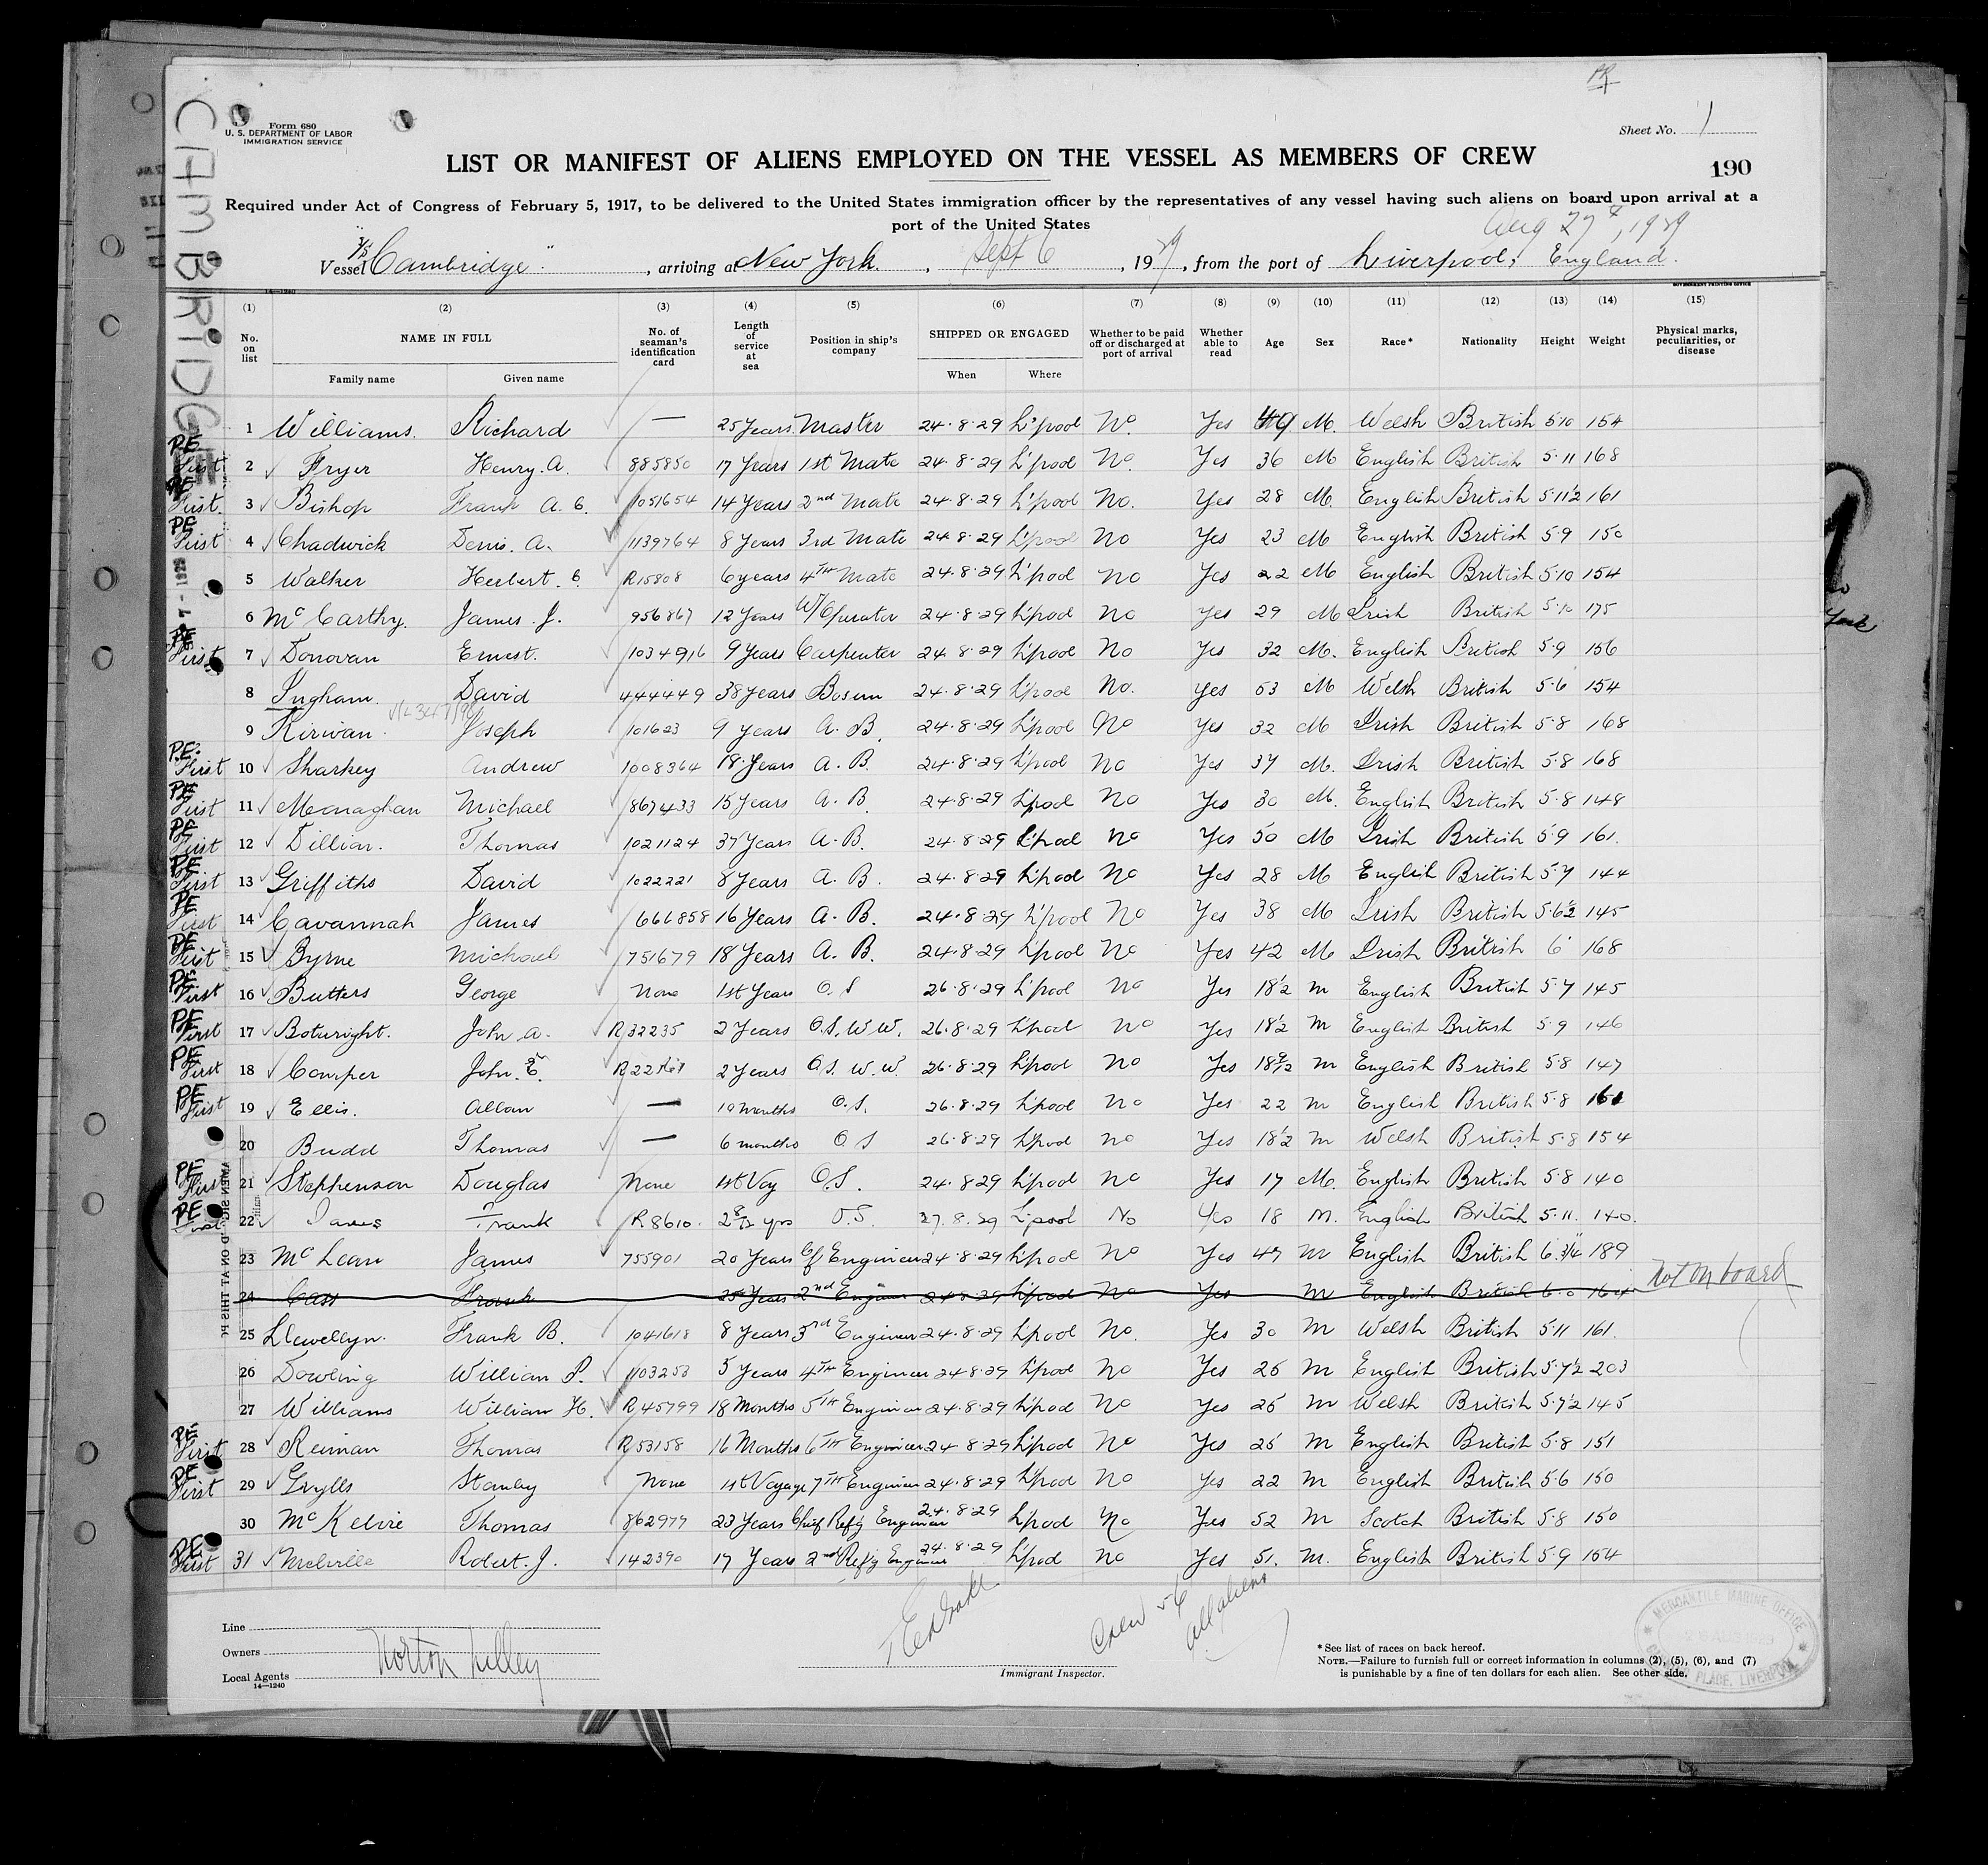 PR
CAMBRIDGE
Form 680
U. S. DEPARTMENT OF LABOR
IMMIGRATION SERVICE
Sheet No. 1
LIST OR MANIFEST OF ALIENS EMPLOYED ON THE VESSEL AS MEMBERS OF CREW
190
Required under Act of Congress of February 5, 1917, to be delivered to the United States immigration officer by the representatives of any vessel having such aliens on board upon arrival at a
port of the United States
Aug 27th, 1929
Vessel "Cambridge", arriving at New York, Sept 6, 1929, from the port of Liverpool, England.
14—1240
GOVERNMENT PRINTING OFFICE
(1) (2) (3) (4) (5) (6) (7) (8) (9) (10) (11) (12) (13) (14) (15)
No. on list NAME IN FULL No. of seaman's identification card Length of service at sea Position in ship's company SHIPPED OR ENGAGED Whether to be paid off or discharged at port of arrival Whether able to read Age Sex Race* Nationality Height Weight Physical marks, peculiarities, or disease
Family name Given name When Where
1 Williams. Richard — 25 Years Master 24.8.29 L'pool No. Yes 49 M. Welsh British 5.10 154
PE First 2 Fryer Henry. A. 885850 17 Years 1st Mate 24.8.29 L'pool No. Yes 36 M English British 5.11 168
PE First. 3 Bishop Frank A. C. 1051654 14 Years 2nd Mate 24.8.29 L'pool No. Yes 28 M. English British 5.11½ 161
PE First 4 Chadwick Denis. A. 1139764 8 Years 3rd Mate 24.8.29 L'pool No Yes 23 M English British 5.9 150
5 Walker Herbert. C. R15808 6 years 4TH Mate 24.8.29 L'pool No Yes 22 M English British 5.10 154
6 McCarthy. James. J. 956867 12 Years W/Operator 24.8.29 L'pool No Yes 29 M Irish British 5.10 175
PE First 7 Donovan Ernest. 1034916 9 Years Carpenter 24.8.29 L'pool No Yes 32 M. English British 5.9 156
8 Ingham. David 444449 38 Years Bosun 24.8.29 L'pool No. Yes 53 M Welsh British 5.6 154
9 Kirwan. Joseph 101623 9 years A. B. 24.8.29 L'pool No Yes 32 M Irish British 5.8 168
PE. First 10 Sharkey Andrew 1008364 18 Years A. B. 24.8.29 L'pool No Yes 37 M. Irish British 5.8 168
PE First 11 Monaghan Michael 867433 15 Years A. B 24.8.29 L'pool No Yes 30 M. English British 5.8 148
PE First 12 Dillion. Thomas 1021124 37 Years A. B. 24.8.29 L'pool No Yes 50 M Irish British 5.9 161.
PE First 13 Griffiths David 1022221 8 Years A. B. 24.8.29 L'pool No Yes 28 M English British 5.7 144
PE First 14 Cavannah James 666858 16 Years A. B. 24.8.29 L'pool No Yes 38 M Irish British 5.6½ 145
PE First 15 Byrne Michael 751679 18 Years A. B. 24.8.29 L'pool No Yes 42 M Irish British 6' 168
PE First 16 Butters George None 1st Years O. S 26.8.29 L'pool No Yes 18½ M English British 5.7 145
PE First 17 Botwright. John. A. R32235 2 Years O.S. W.W. 26.8.29 L'pool No Yes 18½ M English British 5.9 146
PE First 18 Comper John. E. 2 Years O.S. W.W. 26.8.29 L'pool No Yes M English British 5.8 147
PE First 19 Ellis. Allan — 10 months O.S. 26.8.29 L'pool No Yes 22 M English British 5.8
20 Budd Thomas — 6 months O S 26.8.29 L'pool No Yes 18½ M Welsh British 5.8 154
PE First 21 Stephenson Douglas None 1st Voy O.S. 24.8.29 L'pool No Yes 17 M. English British 5.8 140
PE First 22 Frank R8610. yrs O.S. 27.8.29 L'pool No Yes 18 M. English British 5.11. 140.
23 McLean James 755901 20 Years Cf Engineer 24.8.29 L'pool No Yes 47 M English British 189
24 Cass Frank 25 Years 2nd Engineer 24.8.29 L'pool No Yes M English British 6.0 164 Not on board
25 Llewellyn. Frank B. 1041618 8 Years 3rd Engineer 24.8.29 L'pool No. Yes 30 M Welsh British 5.11 161.
26 Dowling William P. 1103253 5 Years 4TH Engineer 24.8.29 L'pool No Yes 26 M English British 5.7½ 203
27 Williams William H. R45799 18 Months 5TH Engineer 24.8.29 L'pool No Yes 26 M Welsh British 5.7½ 145
PE First 28 Reiman Thomas R53158 16 Months 6TH Engineer 24.8.29 L'pool No Yes 25 M English British 5.8 151
PE First 29 Grylls Stanley None 1st Voyage 7TH Engineer 24.8.29 L'pool No Yes 22 M English British 5.6 150
30 McKelvie Thomas 862977 23 Years Chief Ref'g Engineer 24.8.29 L'pool No Yes 52 M Scotch British 5.8 150
PE First 31 Melville Robert. J. 142390 17 Years 2nd Ref'g Engineer 24.8.29 L'pool No Yes 51. M. English British 5.9 154
Line
Owners
Local Agents Norton Lilley
14—1240
Immigrant Inspector.
Crew 56
all aliens
*See list of races on back hereof.
NOTE.—Failure to furnish full or correct information in columns (2), (5), (6), and (7)
is punishable by a fine of ten dollars for each alien. See other side.
MERCANTILE MARINE OFFICE
PLACE, LIVERPOOL